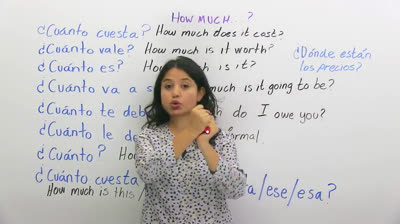 HOW MUCH...?
¿Cuánto cuesta? How much does it cost?
¿Cuánto vale? How much is it worth?
¿Dónde están los precios?
¿Cuánto es? How much is it?
¿Cuánto va a s much is it going to be?
¿Cuánto te deb ch do I owe you?
¿Cuánto le de ormal
¿Cuánto? Ho
¿Cuánto cuesta a/ese/esa?
How much is this/